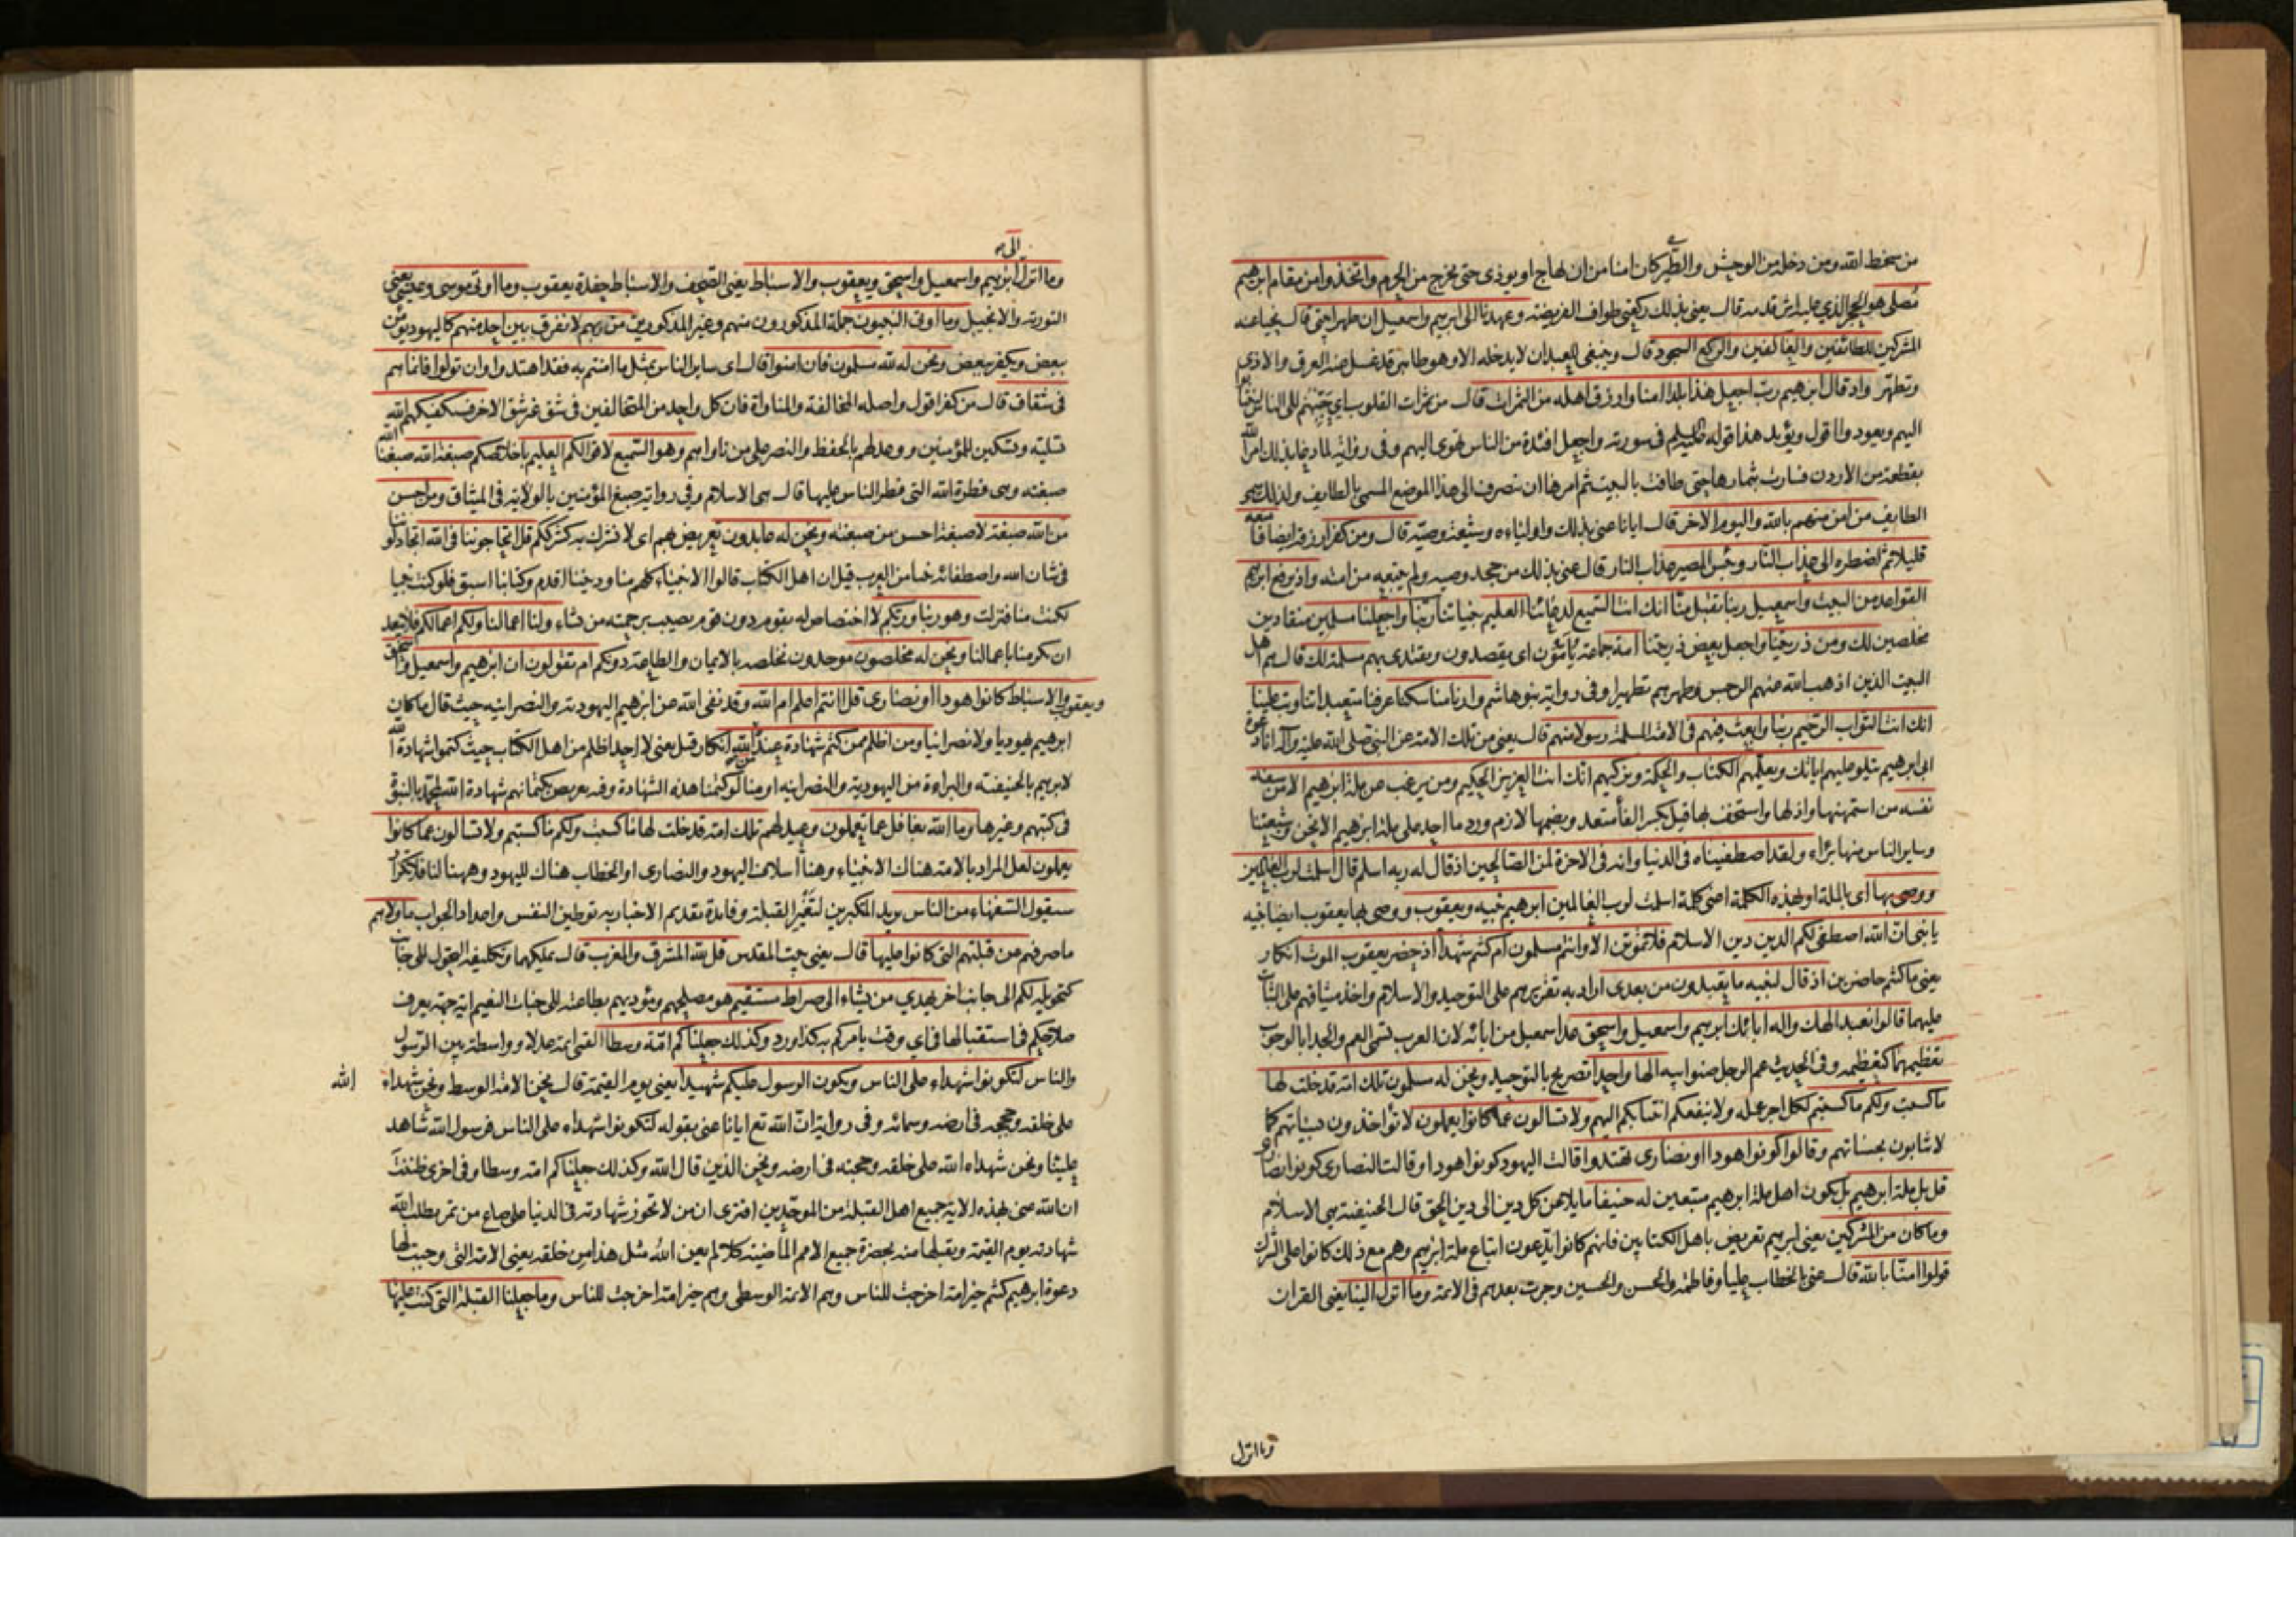 من سخط الله ومن دخله من الوحش والطير كان امنا من ان يهاج او يوذى حتى يخرج من الحرم واتخذوا من مقام ابرهيم
مصلى هو الحجر الذي عليه اثر قدمه قال يعنى بذلك ركعتى طواف الفريضة وعهدنا الى ابرهيم واسمعيل ان طهرا بيتى قال نحيا عنه
المشركين للطائفين والعاكفين والركع السجود قال وينبغى للعبد ان لا يدخله الا وهو طاهر قد غسل عنه العرق والاذى
وتطهر واذ قال ابرهيم رب اجعل هذا بلدا امنا وارزق اهله من الثمرات قال من ثمرات القلوب اي حببهم الى الناس
اليهم ويعودوا اقول ويؤيد هذا قوله في سورته واجعل افئدة من الناس تهوى اليهم وفى رواية لما دعا بذلك امر الله
بقطعة من الاردن فسارت بثمارها حتى طافت بالبيت ثم امرها ان تنصرف الى هذا الموضع المسمى بالطايف ولذلك سمى
الطايف من امن منهم بالله واليوم الاخر قال ايانا عنى بذلك واولياءه وشيعة وصيه قال ومن كفر ارزقه ايضا فامتعه
قليلا ثم اضطره الى عذاب النار وبئس المصير عذاب النار قال عنى بذلك من جحد وصيه ولم يتبعه من امته واذ يرفع ابرهيم
القواعد من البيت واسمعيل ربنا تقبل منا انك انت السميع لدعائنا العليم بنياتنا ربنا واجعلنا مسلمين منقادين
مخلصين لك ومن ذريتنا واجعل بعض ذريتنا امة جماعة يأمون اى يقصدون ويقتدى بهم مسلمة لك قال هم اهل
البيت الذين اذهب الله عنهم الرجس وطهرهم تطهيرا وفى رواية بنو هاشم وارنا مناسكنا عرفنا متعبداتنا وتب علينا
انك انت التواب الرحيم ربنا وابعث فيهم فى الامة المسلمة رسولا منهم قال يعنى من تلك الامة عن النبى صلى الله عليه وآله انا دعوة
ابى ابرهيم يتلو عليهم اياتك ويعلمهم الكتاب والحكمة ويزكيهم انك انت العزيز الحكيم ومن يرغب عن ملة ابرهيم الا من سفه
نفسه من استمهنها واذلها واستخف بها قيل بكسر الفا متعد وبضمها لازم ورد ما احد على ملة ابرهيم الا نحن وشيعتنا
وساير الناس منها براء ولقد اصطفيناه فى الدنيا وانه فى الاخرة لمن الصالحين اذ قال له ربه اسلم قال اسلمت لرب العالمين
ووصى بها اى بالملة او بهذه الكلمة اعنى كلمة اسلمت لرب العالمين ابرهيم بنيه ويعقوب ووصى بها يعقوب ايضا بنيه
يا بنى ان الله اصطفى لكم الدين دين الاسلام فلا تموتن الا وانتم مسلمون ام كنتم شهداء اذ حضر يعقوب الموت انكار
يعنى ما كنتم حاضرين اذ قال لبنيه ما تعبدون من بعدى اراد به تقريرهم على التوحيد والاسلام واخذ ميثاقهم على الثبات
عليهما قالوا نعبد الهك واله ابائك ابرهيم واسمعيل واسحق عد اسمعيل من ابائه لان العرب تسمى العم والجد ابا لوجوب
تعظيمهما كتعظيمه وفى الحديث عم الرجل صنو ابيه الها واحدا تصريح بالتوحيد ونحن له مسلمون تلك امة قد خلت لها
ما كسبت ولكم ما كسبتم لكل اجر عمله ولا ينفعكم انتسابكم اليهم ولا تسالون عما كانوا يعملون لا تواخذون بسيئاتهم كما
لا تثابون بحسناتهم وقالوا كونوا هودا او نصارى تهتدوا قالت اليهود كونوا هودا وقالت النصارى كونوا نصارى
قل بل ملة ابرهيم بل نكون اهل ملة ابرهيم متبعين له حنيفا مايلا عن كل دين الى دين الحق قال الحنيفية هى الاسلام
وما كان من المشركين يعنى ابرهيم تعريض باهل الكتابين فانهم كانوا يدعون اتباع ملة ابرهيم وهم مع ذلك كانوا على الشرك
قولوا امنا بالله قال عنى بالخطاب عليا وفاطمة والحسن والحسين وجرت بعدهم فى الائمة وما انزل الينا يعنى القران
وما انزل
وما انزل الى ابرهيم واسمعيل واسحق ويعقوب والاسباط يعنى الصحف والاسباط حفدة يعقوب وما اوتى موسى وعيسى يعنى
التورية والانجيل وما اوتى النبيون جملة المذكورون منهم وغير المذكورين من ربهم لا نفرق بين احد منهم كاليهود يؤمن
ببعض ويكفر ببعض ونحن له لله مسلمون فان امنوا قال اى ساير الناس بمثل ما امنتم به فقد اهتدوا وان تولوا فانما هم
فى شقاق قال من كفر اقول واصله المخالفة والمناواة فان كل واحد من المتخالفين فى شق غير شق الاخر فسيكفيكهم الله
تسلية وتسكين للمؤمنين ووعد لهم بالحفظ والنصر على من ناواهم وهو السميع لاقوالكم العليم باخلاصكم صبغة الله صبغنا الله
صبغته وهى فطرة الله التى فطر الناس عليها قال هى الاسلام وفى رواية صبغ المؤمنين بالولاية فى الميثاق ومن احسن
من الله صبغة لا صبغة احسن من صبغته ونحن له عابدون تعريض بهم اى لا نشرك به كشرككم قل اتحاجوننا فى الله اتجادلوننا
فى شان الله واصطفائه نبيا من العرب قيل ان اهل الكتاب قالوا الانبياء كلهم منا وديننا اقدم وكتابنا اسبق فلو كنت نبيا
لكنت منا فنزلت وهو ربنا وربكم لا اختصاص له بقوم دون قوم يصيب برحمته من يشاء ولنا اعمالنا ولكم اعمالكم فلا يبعد
ان يكرمنا باعمالنا ونحن له مخلصون موحدون نخلصه بالايمان والطاعة دونكم ام تقولون ان ابرهيم واسمعيل واسحق
ويعقوب والاسباط كانوا هودا او نصارى قل اانتم اعلم ام الله وقد نفى الله عن ابرهيم اليهودية والنصرانية حيث قال ما كان
ابرهيم يهوديا ولا نصرانيا ومن اظلم ممن كتم شهادة عنده من الله انكار قيل يعنى لا احد اظلم من اهل الكتاب حيث كتموا شهادة الله
لابرهيم بالحنيفية والبراءة من اليهودية والنصرانية او منا لو كتمنا هذه الشهادة وفيه تعريض بكتمانهم شهادة الله لمحمد بالنبوة
فى كتبهم وغيرها وما الله بغافل عما تعملون وعيد لهم تلك امة قد خلت لها ما كسبت ولكم ما كسبتم ولا تسالون عما كانوا
يعملون لعل المراد بالامة هناك الانبياء وهنا اسلاف اليهود والنصارى او الخطاب هناك لليهود وههنا لنا فلا تكرار
سيقول السفهاء من الناس يريد المنكرين لتغير القبلة وفايدة تقديم الاخبار به توطين النفس واعداد الجواب ما ولاهم
ما صرفهم عن قبلتهم التى كانوا عليها قال يعنى بيت المقدس قل لله المشرق والمغرب قال يملكهما وتكليفه التحول الى جانب
كتحويله لكم الى جانب اخر يهدي من يشاء الى صراط مستقيم هو مصلحهم ومؤديهم بطاعته الى جنات النعيم اية جهة يعرف
صلاحكم فى استقبالها فى اي وقت يامركم به كذا ورد وكذلك جعلناكم امة وسطا القمى ائمة عدلا وواسطة بين الرسول
والناس لتكونوا شهداء على الناس ويكون الرسول عليكم شهيدا يعنى يوم القيمة قال نحن الامة الوسط ونحن شهداء الله
على خلقه وحججه فى ارضه وسمائه وفى رواية ان الله تع ايانا عنى بقوله لتكونوا شهداء على الناس فرسول الله شاهد
علينا ونحن شهداء الله على خلقه وحجته فى ارضه ونحن الذين قال الله وكذلك جعلناكم امة وسطا وفى اخرى ظننت
ان الله عنى بهذه الاية جميع اهل القبلة من الموحدين افترى ان من لا تجوز شهادته فى الدنيا على صاع من تمر يطلب الله
شهادته يوم القيمة ويقبلها منه بحضرة جميع الامم الماضية كلا لم يعن الله مثل هذا من خلقه يعنى الامة التى وجبت لها
دعوة ابرهيم كنتم خير امة اخرجت للناس وهم الامة الوسطى وهم خير امة اخرجت للناس وما جعلنا القبلة التى كنت عليها